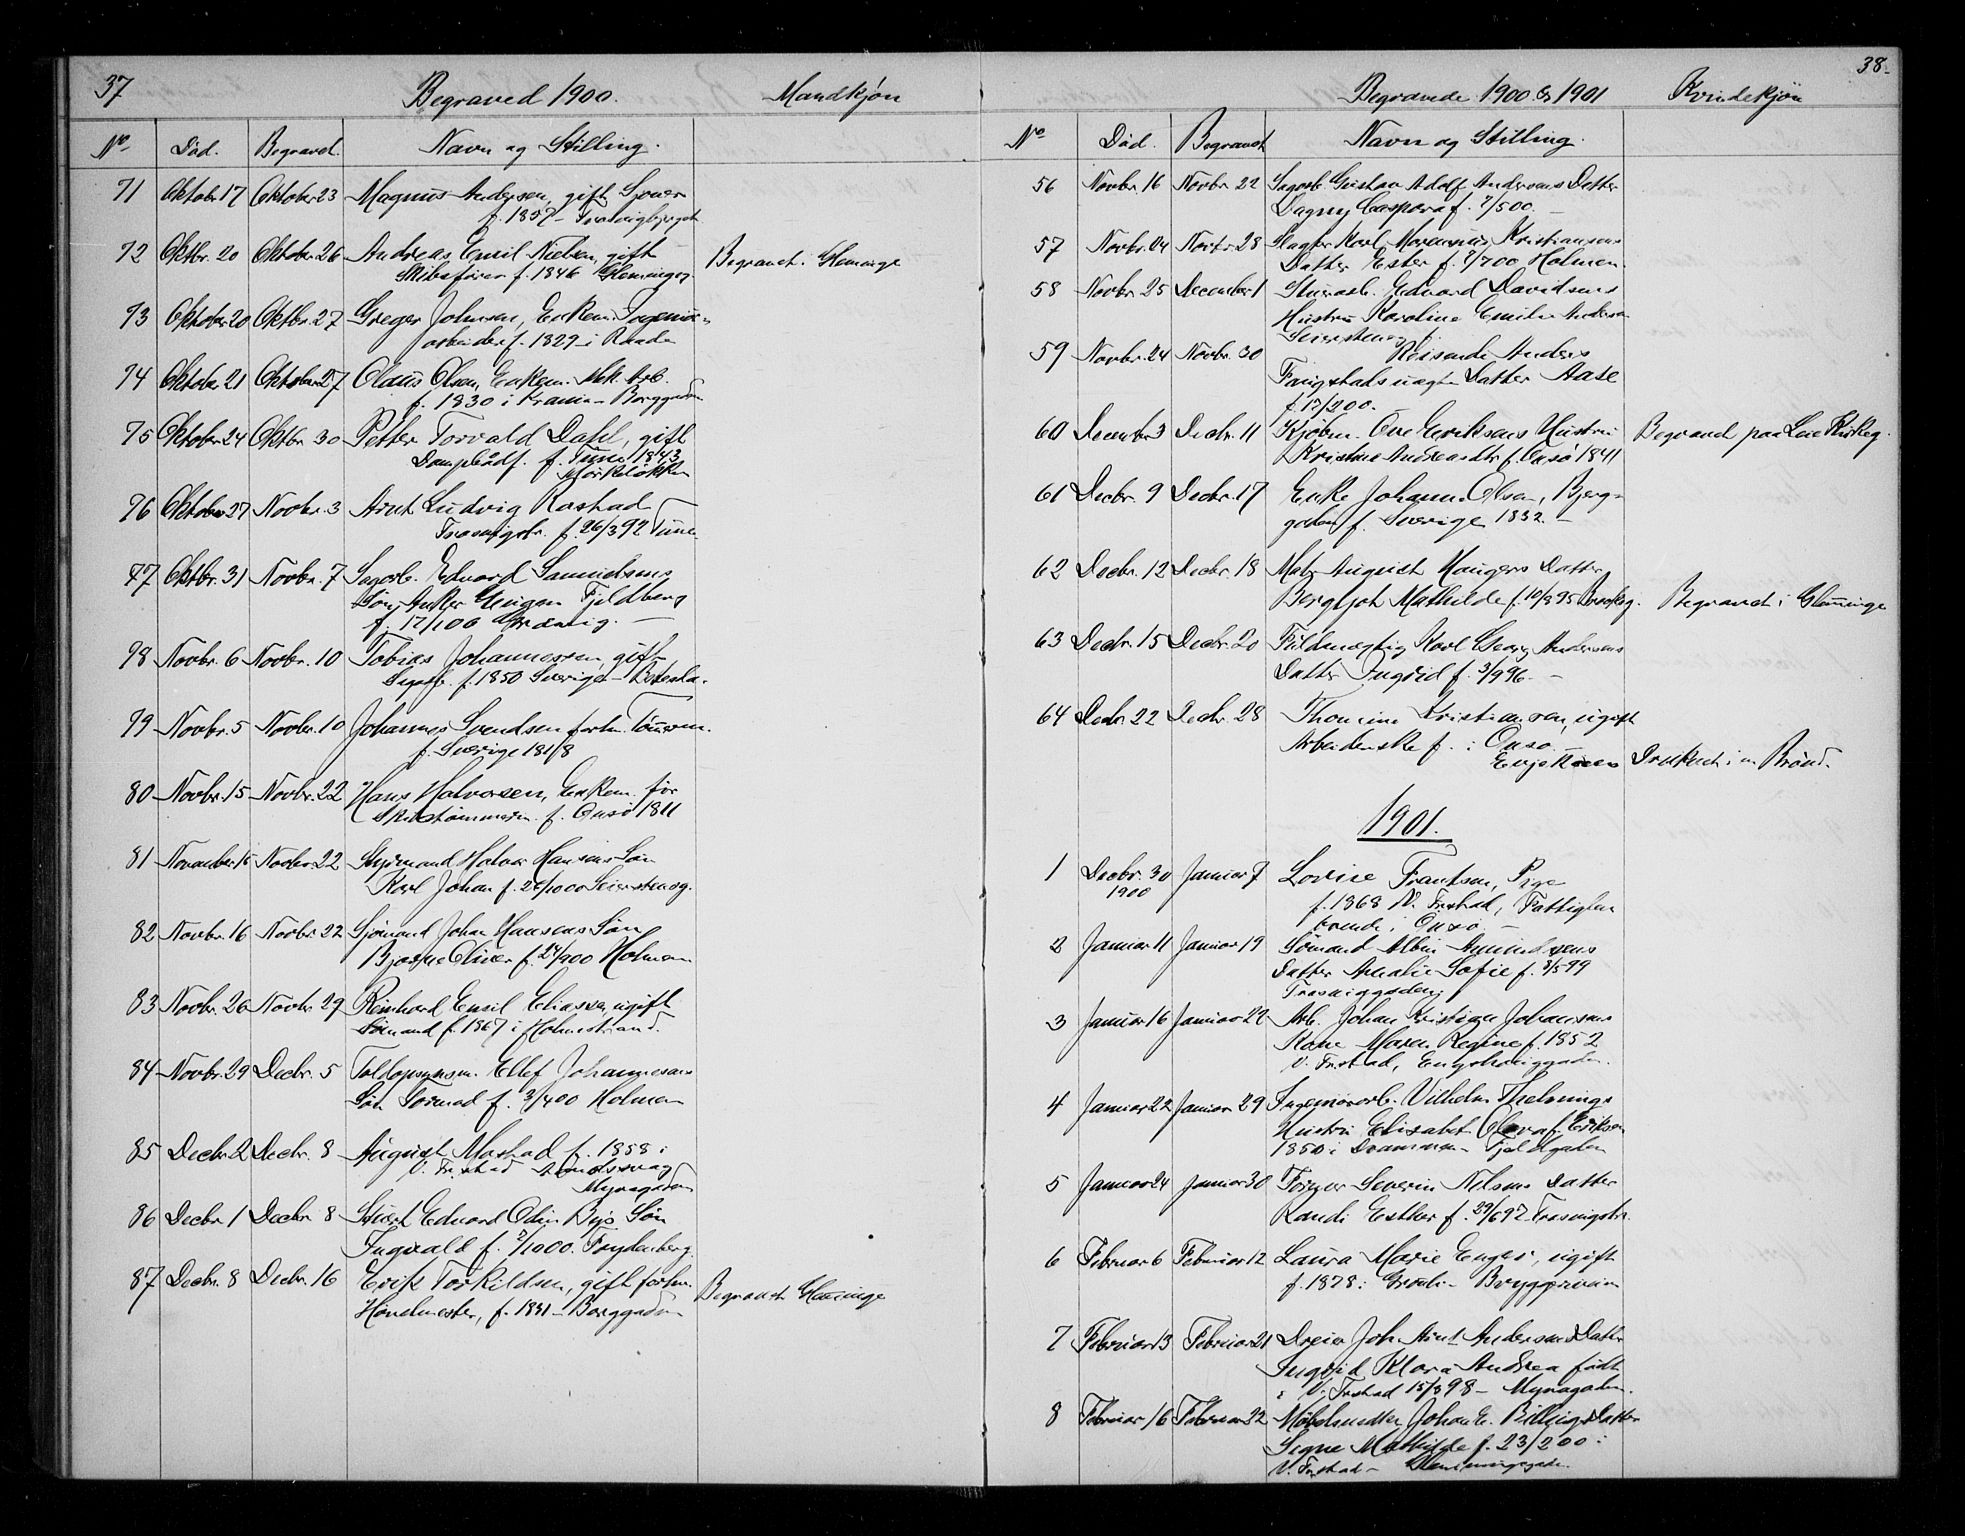 37
Begraved 1900.
Mandkjøn
No. Død. Begraved. Navn og Stilling.
71 Oktobr 17 Oktober 23 Magnus Andersen, gift
f. 1857
72 Oktbr. 20 Oktober 26 Andreas Emil Nielsen, gift Begravet i Glemminge
Skibsfører f. 1846
73 Oktober 20 Oktbr. 27 Greger Johnsen, Enkem.
arbeider f. 1829 i Raade
74 Oktober 21 Oktober 27 Olaus Olsen, Enkem. Mek. Arb.
f. 1830 i Krania - Borggaden
75 Oktober 24 Oktbr. 30 Petter Torvald Dahl, gift
f. Tune 1843
76 Oktober 27 Novbr. 3 Arnt Ludvig Rostad
Trosvigstr. f. 26/3 92 Tune
77 Oktbr. 31 Novbr. 7 Sagarb. Edvard Samuelsens
Søn Anker Eugen Fjeldberg
f. 17/1 00
78 Novbr. 6 Novbr. 10 Tobias Johannessen, gift
f. 1850 Sverige
79 Novbr. 5 Novbr. 10 Johannes Svendsen forhn. Tømmerm.
f. Sverige 1818
80 Novbr. 15 Novbr. 22 Hans Halvorsen, Enkem. før
Skibstømmerm. f. Onsø 1811
81 November 15 Novbr. 22 Styrmand Halvor Hansens Søn
Karl Johan f. 26/10 00 Seierstenog.
82 Novbr. 16 Novbr. 22 Sjømand Johan Hansens Søn
Bjarne Oliver f. 24/9 00 Holmen
83 Novbr. 26 Novbr. 29 Reinhard Emil Eliassen, ugift
Sømand f. 1867 i Holmestrand.
84 Novbr. 29 Decbr. 5 Toldopsynsm. Ellef Johannesens
Søn Tormod f. 3/4 00 Holmen
85 Decbr. 2 Decbr. 8 August Mostad f. 1858 i
V. Frstad
Myragaden
86 Decbr. 1 Decbr. 8 Edvard Odin Bys Søn
Ingvald f. 2/10 00. Frydenberg.
87 Decbr. 8 Decbr. 16 Erik Torkildsen, gift forhn. Begravet Glemminge
f. 1831 - Borggaden
38.
Begravede 1900 & 1901
Kvindekjøn
No Død. Begravet Navn og Stilling.
56 Novbr. 16 Novbr. 22 Sagarb. Gustav Adolf Andersens Datter
Dagny Caspara f. 7/5 00.
57 Novbr. 24 Novbr. 28 Slagter Karl Marensius Kristiansens
Datter Ester f. 7/7 00 Holmen.
58 Novbr. 25 December 1 Edvard Davidsens
Hustru Karoline Emilie Andersen
59 Novbr. 24 Novbr. 30 Reisende Anders
Datter Aase
f. 17/2 00.
60 December 3 Decbr. 11 Kjøbm. Ove Eriksens Hustru Begravet paa Leie Kirkeg.
Kristine Andreasdtr f. Onsø 1841
61 Decbr. 9 Decbr. 17 Enke Johanne Olsen, Bjerg-
gaden f. Sverige 1832.
62 Decbr. 12 Decbr. 18 August Haugers Datter
Bergljot Mathilde f. 10/8 95 Begravet i Glemminge
63 Decbr. 15 Decbr. 20 Fuldmægtig Karl Georg Andersens
Datter Ingrid f. 3/9 96.
64 Decbr. 22 Decbr. 28 Thomine Kristiansen, ugift
Arbeiderske f. i Onsø
Druknet i en Brønd.
1901.
1 Decbr. 30 Januar 7 Lovise Frantsen, Pige
1900
f. 1868 V. Frstad, Fattiglem
boende i Onsø
2 Januar 11 Januar 19 Sømand Albin Amundsens
Datter Amalie Sofie f. 8/5 99
Trosviggaden
3 Januar 16 Januar 22 Arb. Johan Kristian Johansens
Kone Maren Regine f. 1852
V. Frstad, Engelsviggaden.
4 Januar 22 Januar 29 Vilhelm
Hustru Elisabet Olava f. Eriksen
1850 i Drammen - Fjeldgaden
5 Januar 24 Januar 30 Severin Nilsens Datter
Randi Esther f. 29/6 97 Trosvigstr.
6 Februar 6 Februar 12 Laura Marie Enger, ugift
f. 1878 i
7 Februar 13 Februar 21 Dreier Joh. Arnt Andersens Datter
Ingrid Klara Andrea født
i V. Frstad 15/3 98 - Myragaden.
8 Februar 16 Februar 22 Johan E. Billings Datter
Signe Mathilde f. 23/2 00 i
V. Frstad -